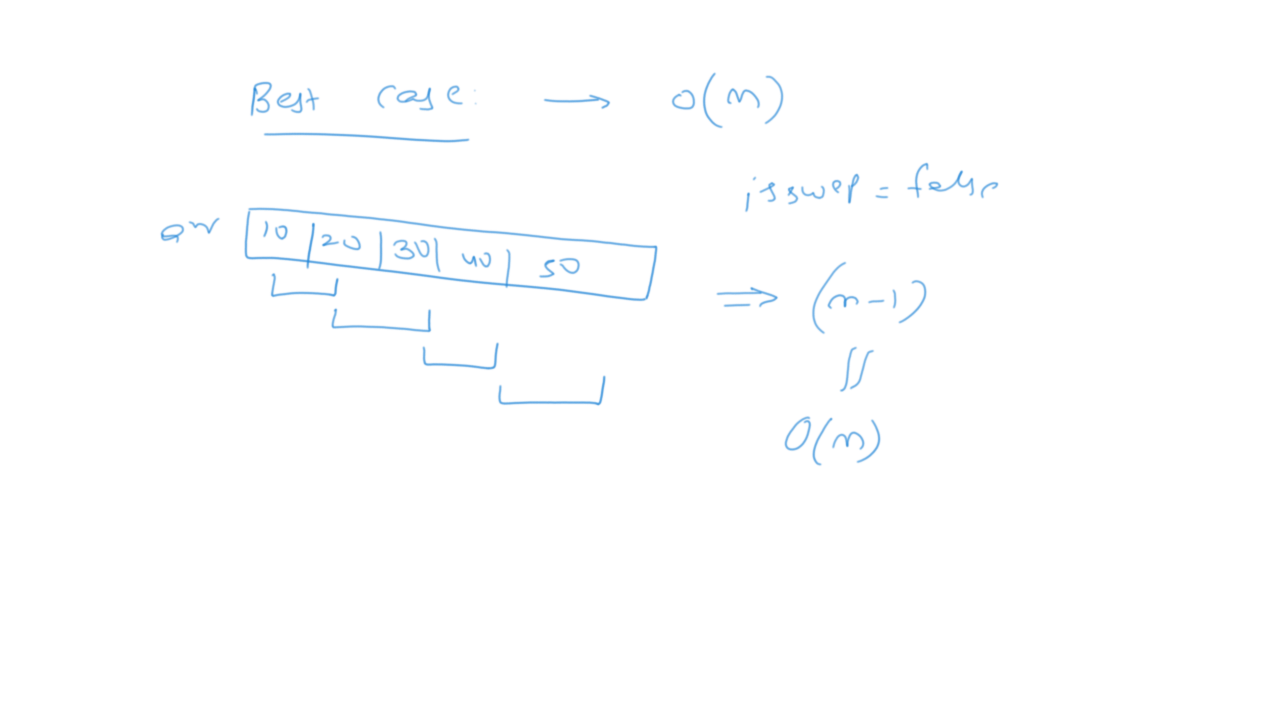 Best case: → O(n)
isswap = false
arr 10 20 30 40 50
⇒ (n-1)
O(n)